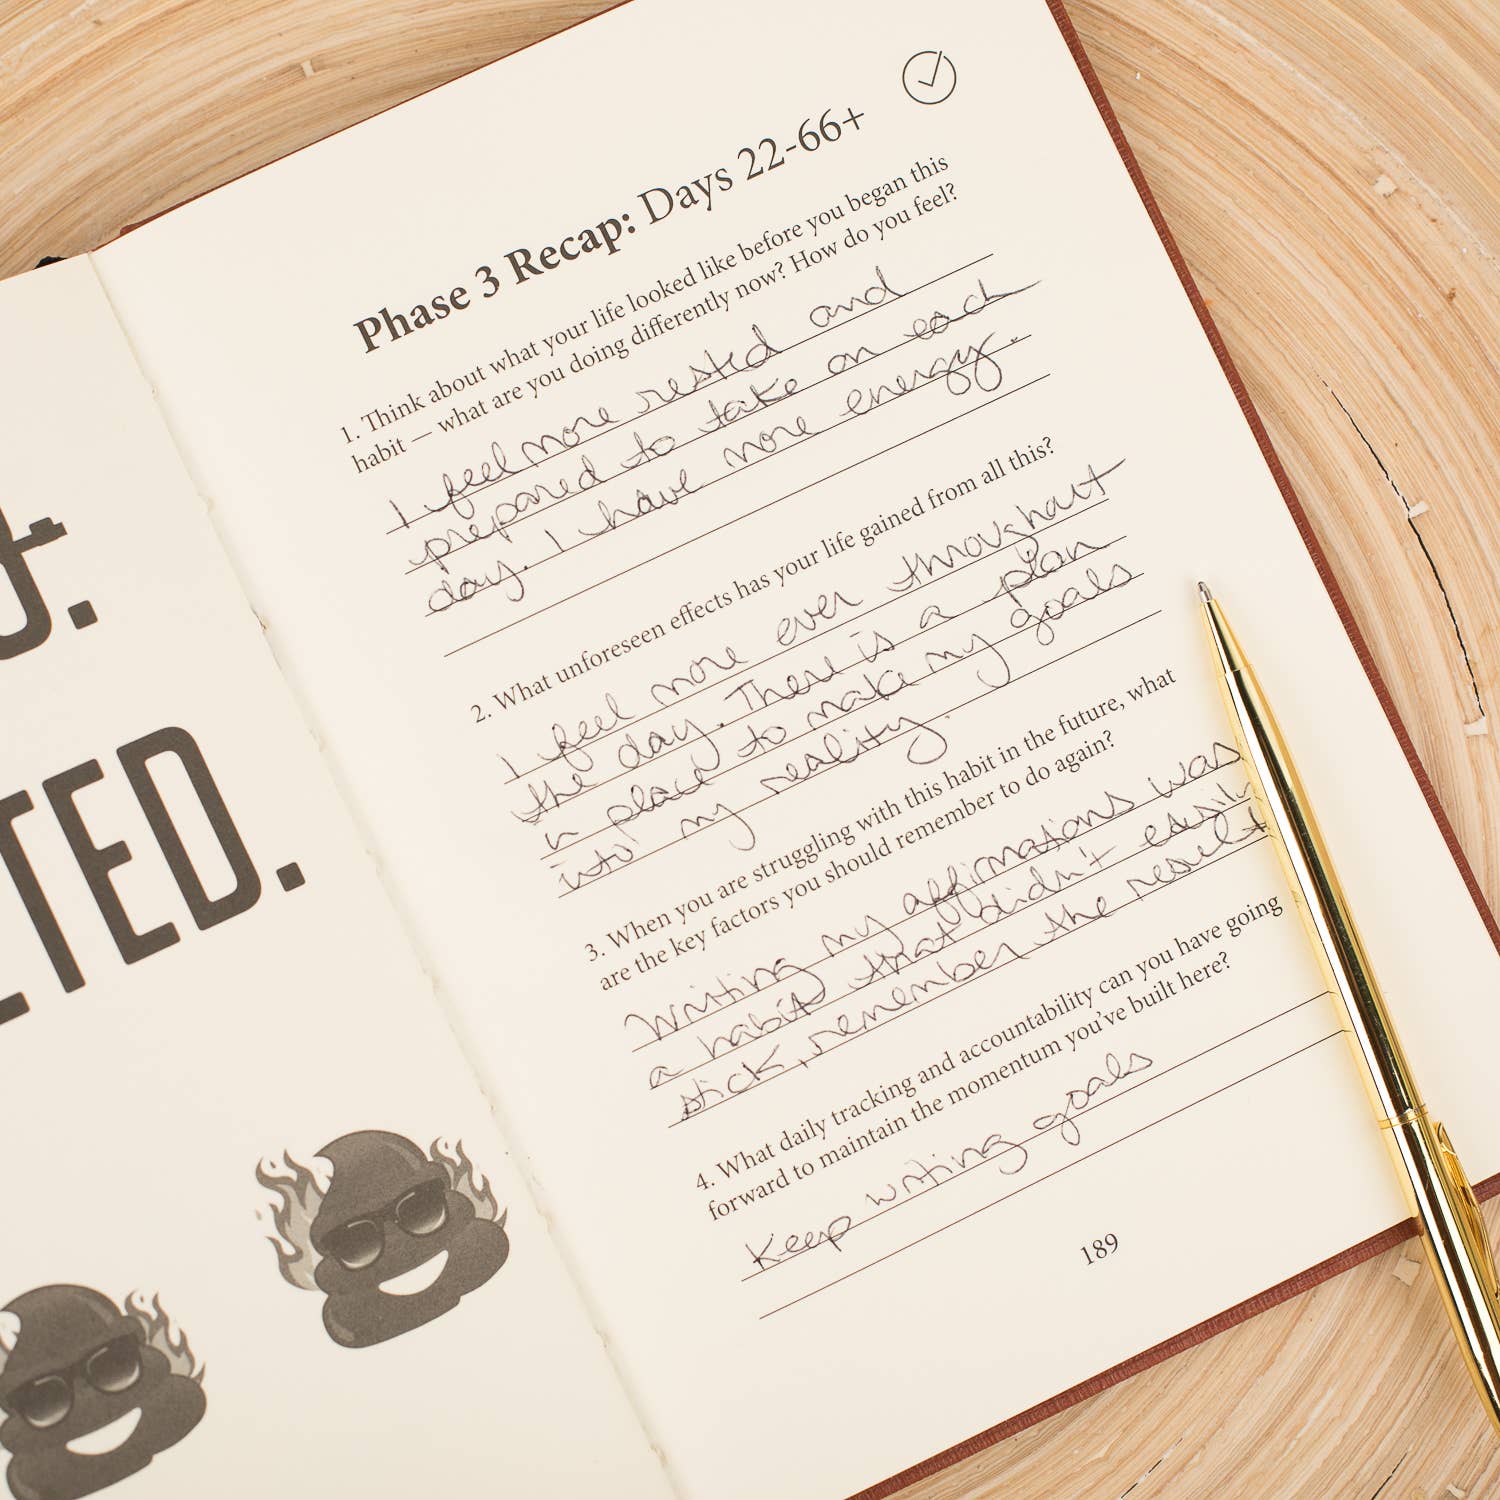 TED.
Phase 3 Recap: Days 22-66+
1. Think about what your life looked like before you began this
habit — what are you doing differently now? How do you feel?
I feel more rested and
prepared to take on each
day. I have more energy.
2. What unforeseen effects has your life gained from all this?
I feel more ever throughout
the day. There is a plan
in place to make my goals
into my reality.
3. When you are struggling with this habit in the future, what
are the key factors you should remember to do again?
Writing my affirmations was
a habit that didn't easily
stick, remember the result
4. What daily tracking and accountability can you have going
forward to maintain the momentum you've built here?
Keep writing goals
189